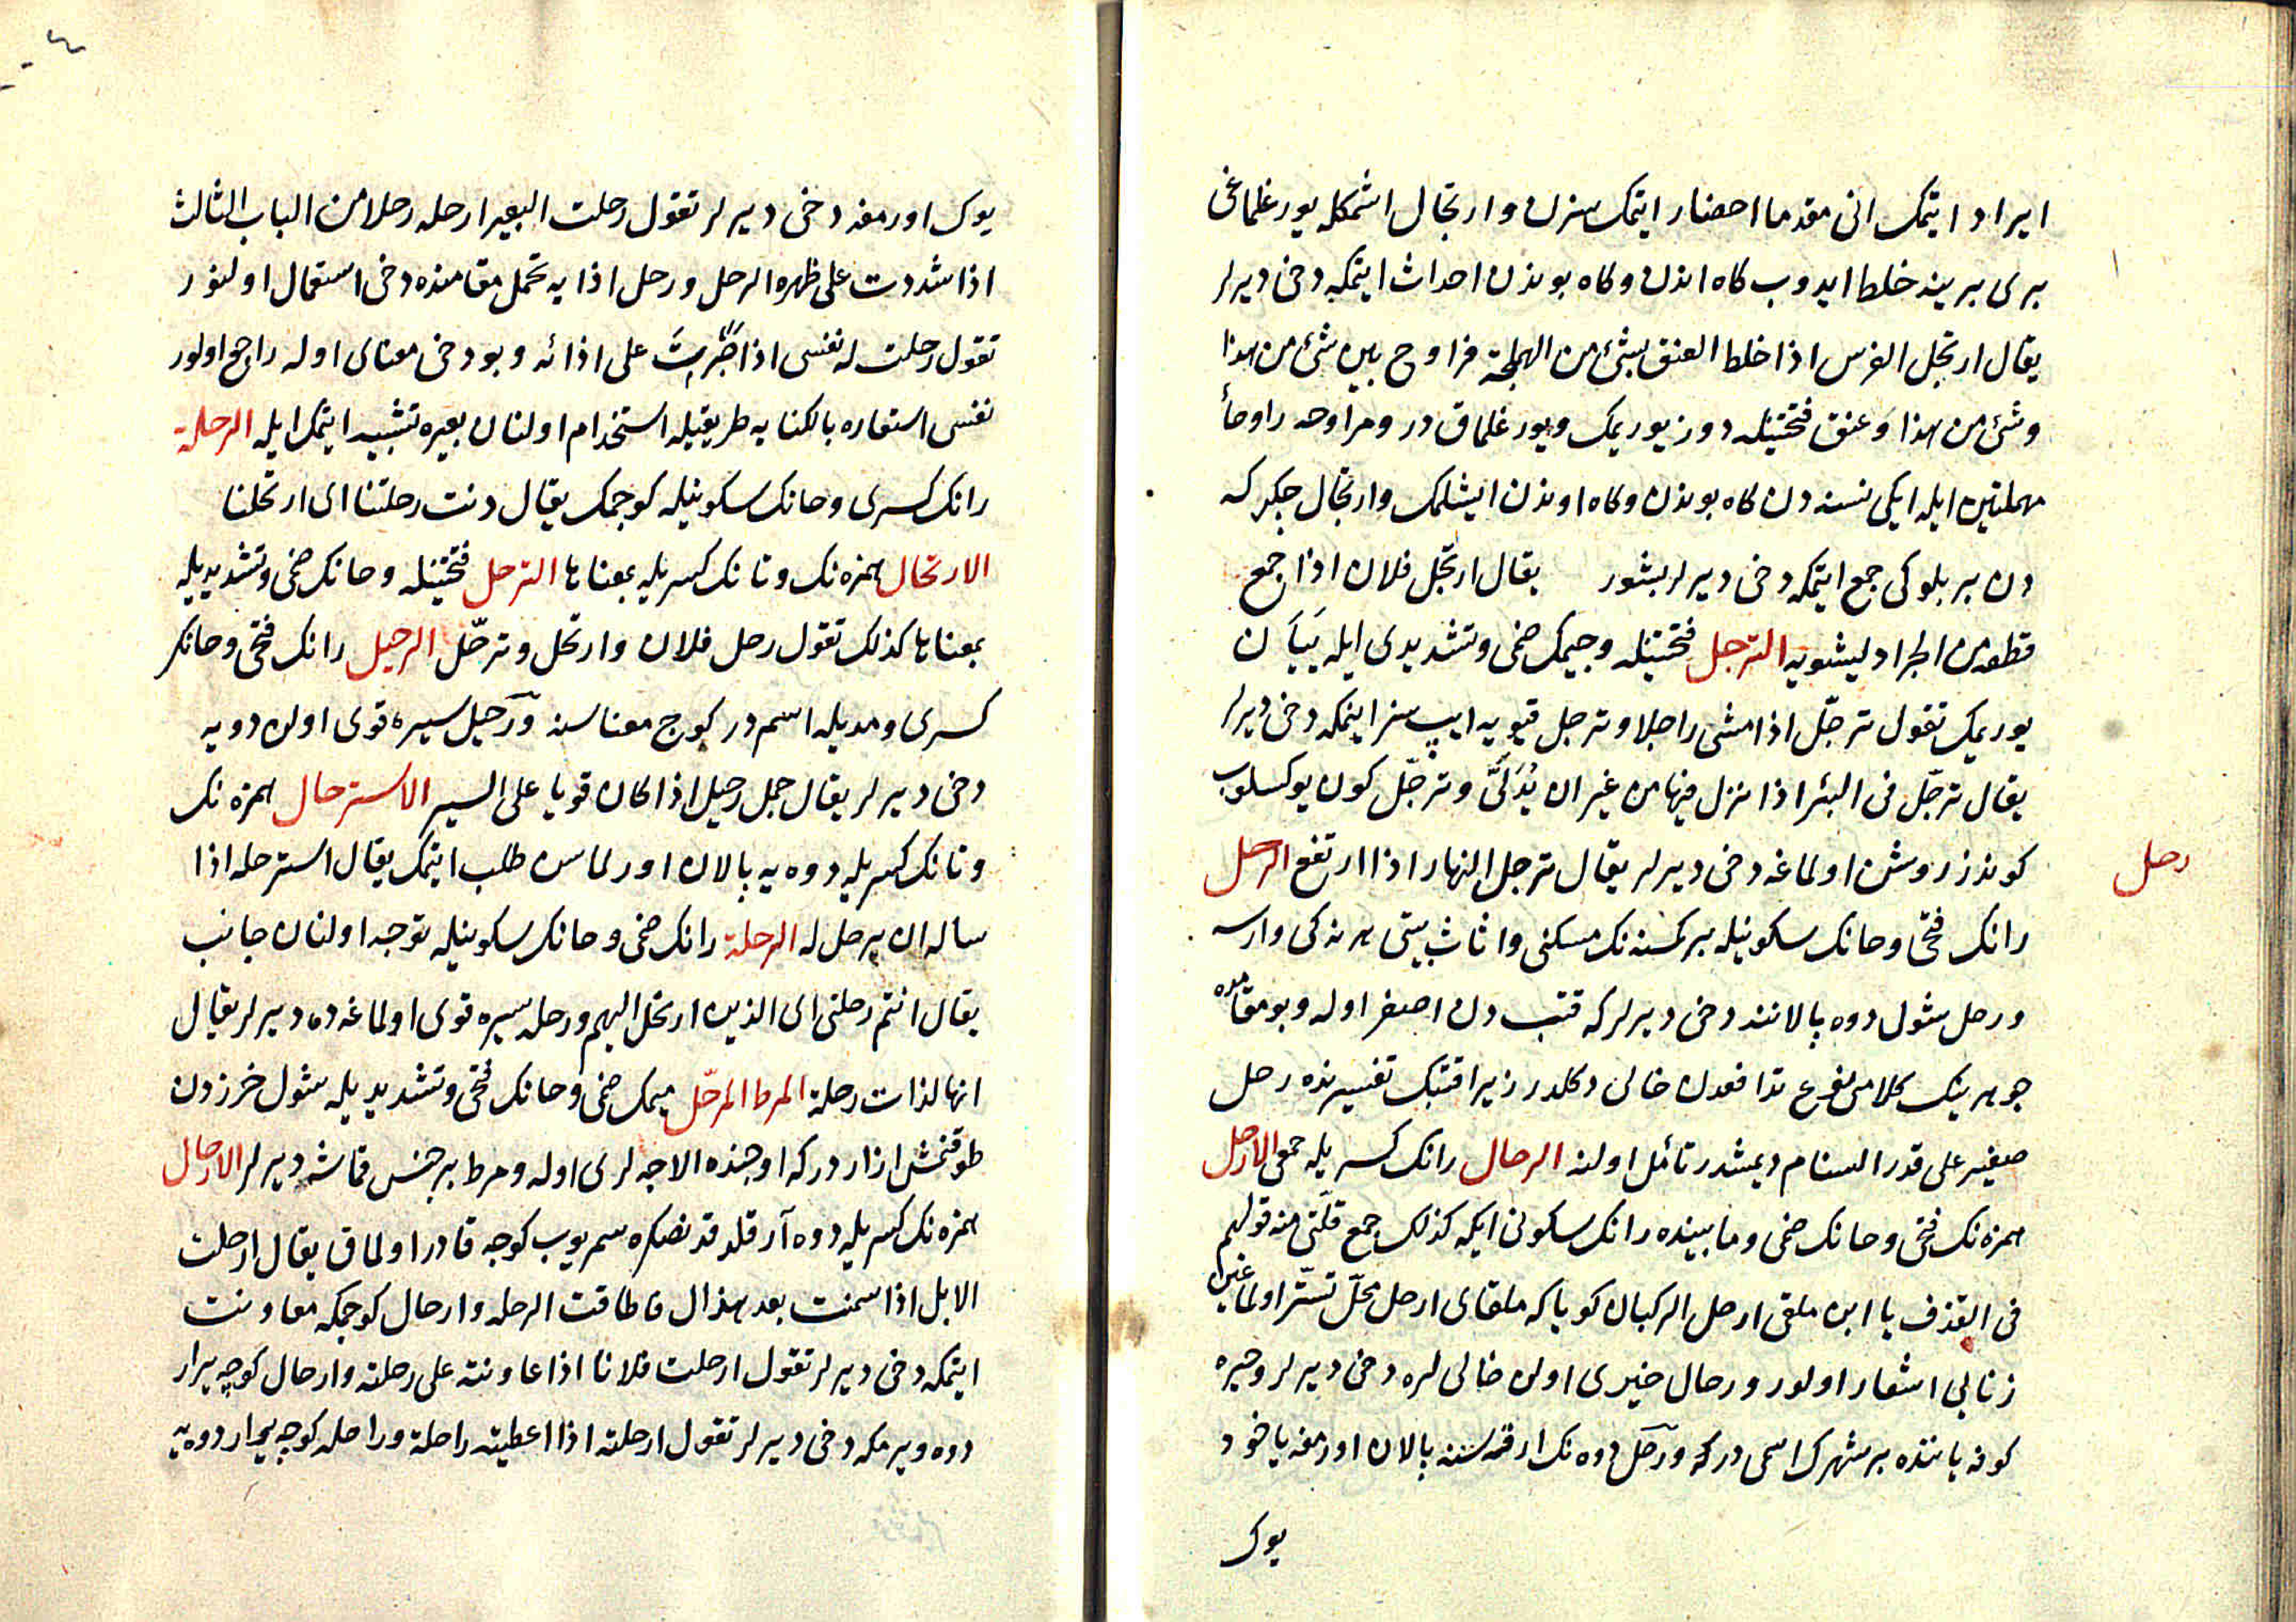 ايراد ايتمك انى مقدما احضار ايتمك سزن وارتجال اشمكله يورغلماغى
برى برينه خلط ايدوب كاه اندن وكاه بوندن احداث ايتمكه دخى ديرلر
يقال ارتجل الفرس اذا خلط العنق بشئ من الهملجة فراوح بين شئ من هذا
وشئ من هذا وعنق فتحتينله دوز يوريمك ويورغلماق در ومراوحه را وحأ
مهملتين ايله ايكى نسنه دن كاه بوندن وكاه اوندن ايشلمك وارتجال چكركه
دن بر بلوكى جمع ايتمكه دخى ديرلر بشور يقال ارتجل فلان اذا جمع
قطعه من الجراد ليشويه الترجل فتحتينله وجيمك ضمى وتشديدى ايله يَيَان
يوريمك تقول ترجّل اذا مشى راجلا وترجل قيويه ايپ سز اينمكه دخى ديرلر
يقال ترجّل فى البئر اذا نزل فيها من غير ان يُدَلَّى وترجّل كون يوكسلوب
كوندز روشن اولماغه دخى ديرلر يقال ترجل النهار اذا ارتفع الرحل
رحل
رانك فتحى وحانك سكونيله بر كمسنه نك مسكنى واثاث بيتى هر نه كى وارسه
ورحل شول دوه پالاننه دخى ديرلر كه قتب دن اصغر اوله وبو مقامده
جوهرينك كلامى نوع تدافعدن خالى دكلدر زيرا قتبك تفسيرنده رحل
صغير على قدر السنام ديمشدر تأمل اولنه الرحال رانك كسريله جمعى الارحل
همزه نك فتحى وحانك ضمى ومابينده رانك سكونى ايكه كذلك جمع قلّتى منه قولهم
فى القذف يا ابن ملقى ارحل الركبان كويا كه ملقاى ارحل محلّ تستّر اولماغين
زنايى اشعار اولور ورحال حيرى اولن خالى لره دخى ديرلر وحيره
كوفه ياننده بر شهرك اسمى در كه ورَحَل دوه نك ارقه سنه پالان اورمغه ياخود
يوك
يوك اورمغه دخى ديرلر تقول رحلت البعير ارحله رحلا من الباب الثالث
اذا شددت على ظهره الرحل ورحل اذايه تحمل مقامنده دخى استعمال اولنور
تقول رحلت له نفسى اذا صَبَرتَ على اذائه وبو دخى معناى اوله راجع اولور
نفسى استعاره بالكنايه طريقيله استخدام اولنان بعيره تشبيه ايتمك ايله الرحلة
رانك كسرى وحانك سكونيله كوچمك يقال دنت رحلتنا اى ارتحلنا
الارتحال همزه نك وتانك كسريله بمعناها الترحل فتحتينله وحانك ضمى وتشديديله
بمعناها كذلك تقول رحل فلان وارتحل وترحّل الرحيل رانك فتحى وحانك
كسرى ومديله اسم در كوچ معناسنه ورَحيل سيره قوى اولن دويه
دخى ديرلر يقال جمل رحيل اذا كان قويا على السير الاسترحال همزه نك
وتانك كسريله دوه يه پالان اورلماسن طلب ايتمك يقال استرحله اذا
سأله ان يرحل له الرحلة رانك ضمى وحانك سكونيله توجه اولنان جانب
يقال انتم رحلتى اى الذين ارتحل اليهم ورحله سيره قوى اولماغه ده ديرلر يقال
انها لذات رحلة المرط المرحّل ميمك ضمى وحانك فتحى وتشديديله شول خزدن
طوقنمش ازار در كه اوجنده الاجه لرى اوله ومرط بر جنس قماشه ديرلر الارحال
همزه نك كسريله دوه آرقلدقدنصكره سمريوب كوچه قادر اولماق يقال ارحلت
الابل اذا سمنت بعد هزال فاطاقت الرحله وارحال كوچمكه معاونت
ايتمكه دخى ديرلر تقول ارحلت فلانا اذا عاونته على رحلته وارحال كوچه يرار
دوه ويرمكه دخى ديرلر تقول ارحلته اذا اعطيته راحلة وراحله كوچه يرار دوه يه